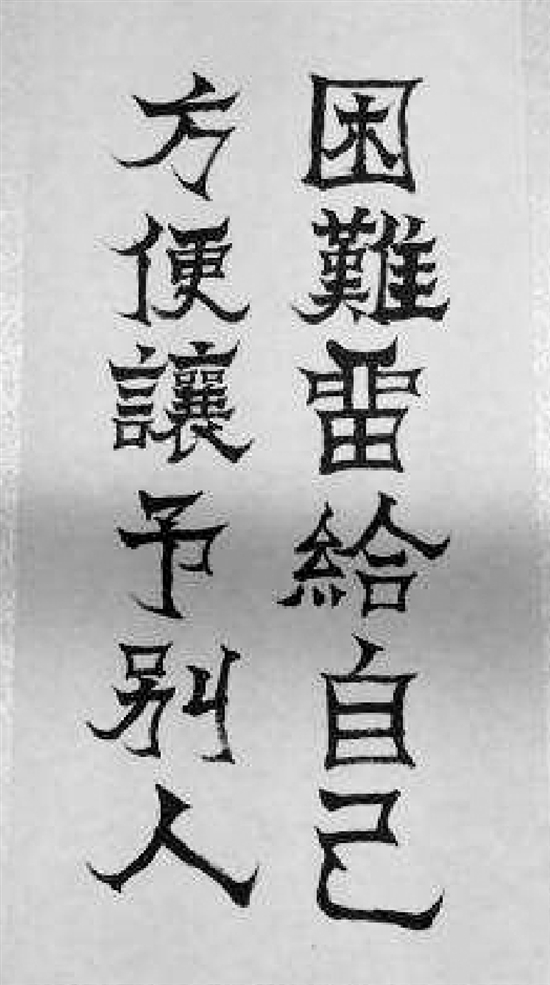 困難畱給自己
方便讓予别人